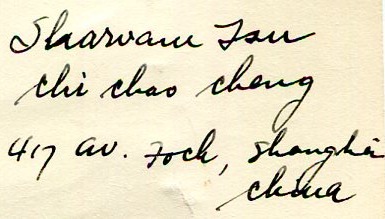 Sharvane Tsu
Chi Chao Cheng
417 Av. Foch, Shanghai
China